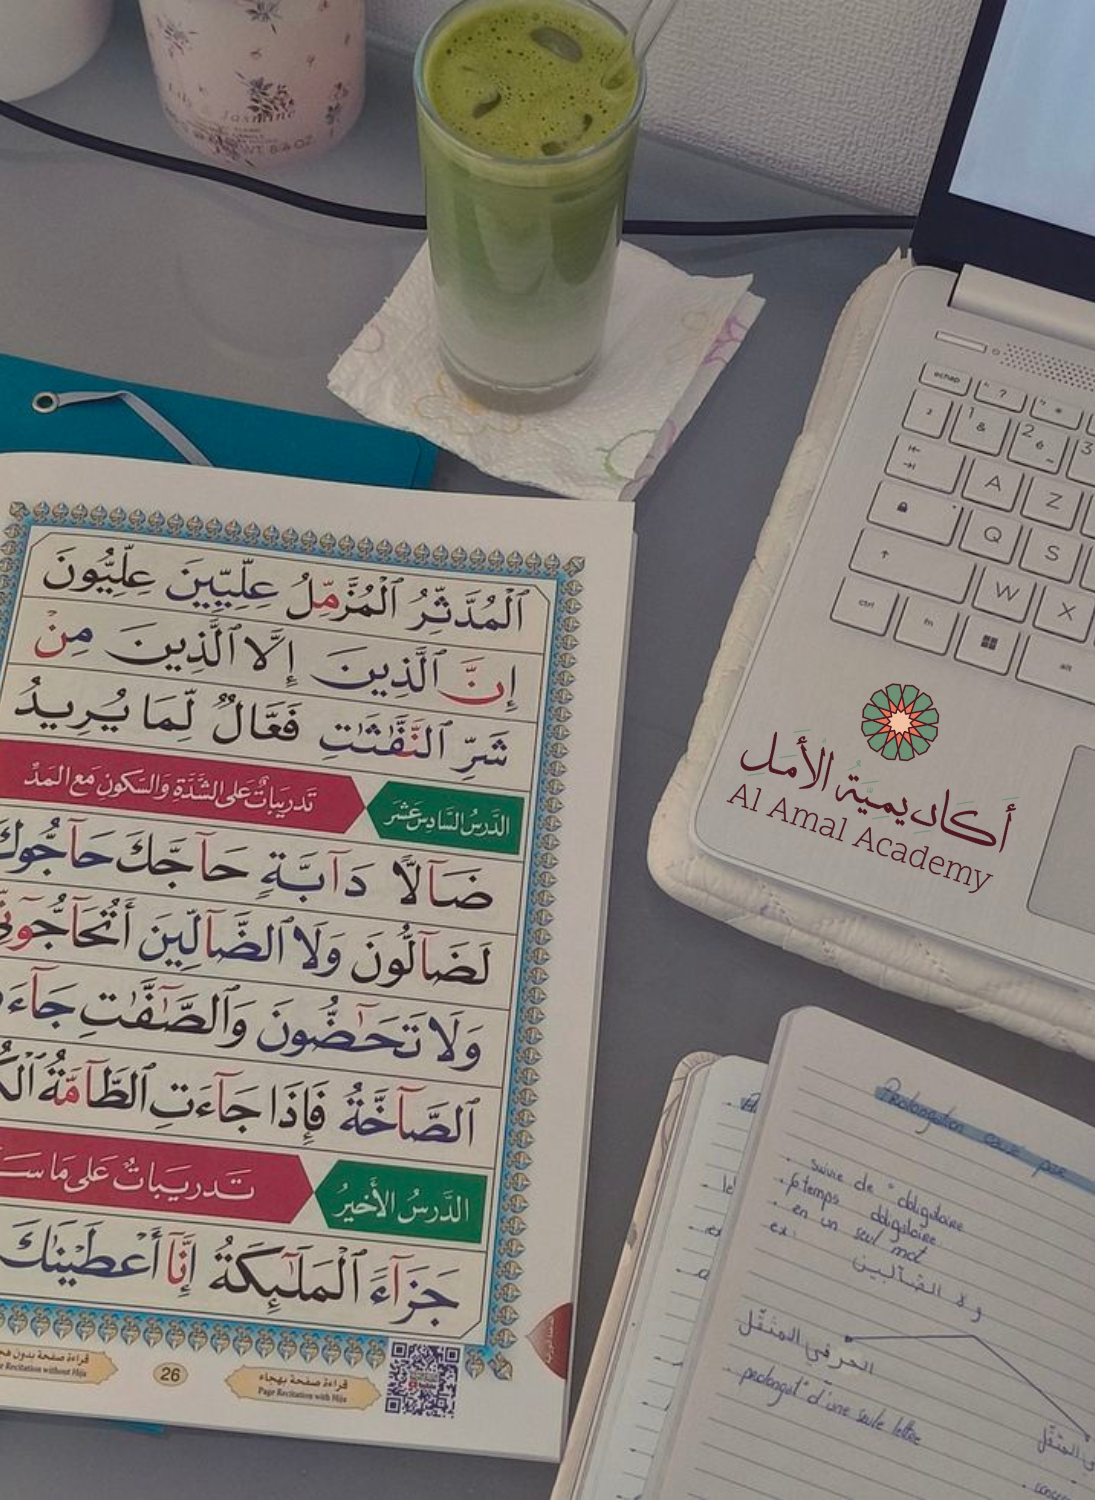 Jasmine
WT. 8.4 OZ.
echap
?
*
2
1 &
2 é ~
3
A
Z
Q
S
W
X
ctrl
fn
alt
أكاديمية الأمل
Al Amal Academy
ٱلْمُدَّثِّرُ ٱلْمُزَّمِّلُ عِلِّيِّينَ عِلِّيُّونَ
إِنَّ ٱلَّذِينَ إِلَّا ٱلَّذِينَ مِنْ
شَرِّ ٱلنَّفَّٰثَٰتِ فَعَّالٌ لِّمَا يُرِيدُ
الدَّرسُ السَّادِسَ عَشَر
تَدرِيبَاتٌ عَلى الشَّدَّةِ وَالسّكونِ مَع المَدّ
ضَآلًّا دَآبَّةٍ حَآجَّكَ حَآجُّوكَ
لَضَآلُّونَ وَلَا ٱلضَّآلِّينَ أَتُحَآجُّوٓنِّي
وَلَا تَحَٰٓضُّونَ وَٱلصَّٰٓفَّٰتِ
ٱلصَّآخَّةُ فَإِذَا جَآءَتِ ٱلطَّآمَّةُ
الدَّرسُ الأَخيرُ
تَدريبَاتٌ عَلى مَا
جَزَآءَ ٱلْمَلَٰٓئِكَةُ إِنَّآ أَعْطَيْنَٰكَ
قراءة صفحة بهجاء
Page Recitation with Hija
26
قراءة صفحة بدون
Recitation without Hija
Prolongation
. suivie de ° obligatoire
. 6 temps obligatoire
. en un seul mot
ex:
و لا الضآلين
الحرفي المثقّل
prolongat° d'une seule lettre